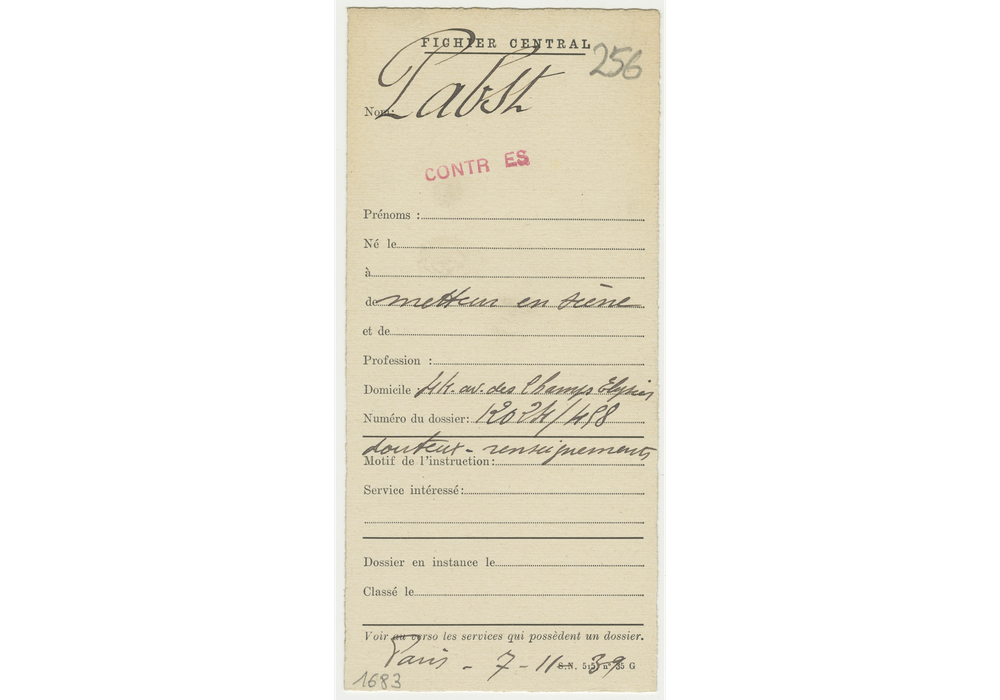 FICHIER CENTRAL
256
Nom: Pabst
CONTR ES
Prénoms :
Né le
à
de metteur en scène
et de
Profession :
Domicile : 44. av. des Champs Elysées
Numéro du dossier: 12024/498
douteux - renseignements
Motif de l'instruction:
Service intéressé:
Dossier en instance le
Classé le
Voir au verso les services qui possèdent un dossier.
Paris - 7-11-39
S.N. 515 n° 35 G
1683